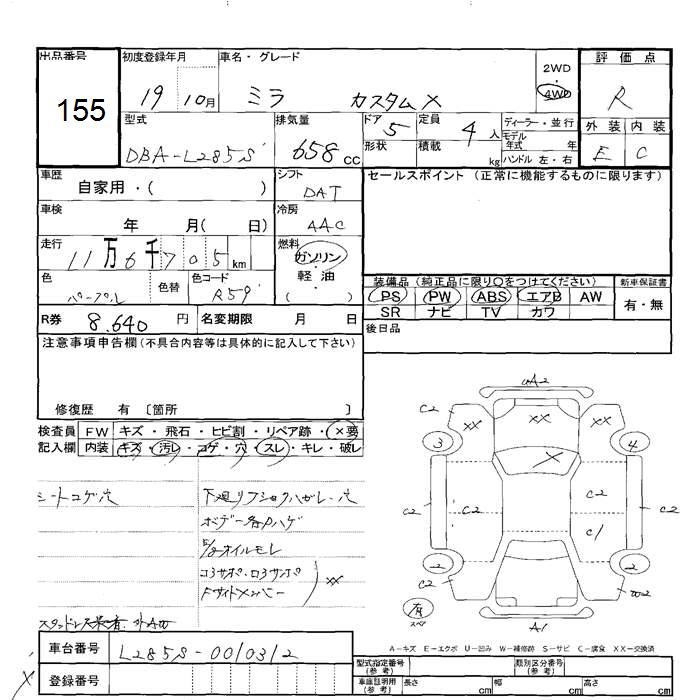 出品番号 初度登録年月 車名・グレード 2WD ・ 4WD 評価点
155 19 10月 ミラ カスタムX R
型式 排気量 ドア 定員 ディーラー・並行 外装 内装
DBA-L285S 658cc 5 4人 モデル年式 年 E C
形状 積載 kg ハンドル 左・右
車歴 シフト セールスポイント (正常に機能するものに限ります)
自家用・( ) DAT
車検 冷房
年 月( 日) AAC
走行 燃料
11万6千705km ガソリン・軽油
色 色替 色コード ( ) 装備品 (純正品に限り○をつけてください) 新車保証書
パープル R59 PS PW ABS エアB AW 有・無
R券 8.640円 名変期限 月 日 SR ナビ TV カワ
注意事項申告欄(不具合内容等は具体的に記入して下さい) 後日品
修復歴 有 〔箇所 〕
検査員 FW キズ・飛石・ヒビ割・リペア跡・×要
記入欄 内装 キズ・汚レ・コゲ・穴・スレ・キレ・破レ
シートコゲ穴
ボデー各Pハゲ
オイルモレ
XX
A2
C2 XX XX XX C2
3 X 4
C2 C2 C2 C2
C1
2 2
C2 W2
有
A1
A-キズ E-エクボ U-凹み W-補修跡 S-サビ C-腐食 XX-交換済
車台番号 L285S-0010312
登録番号
型式指定番号(参考) 類別区分番号(参考)
車庫証明用(参考) 長さ cm 幅 cm 高さ cm